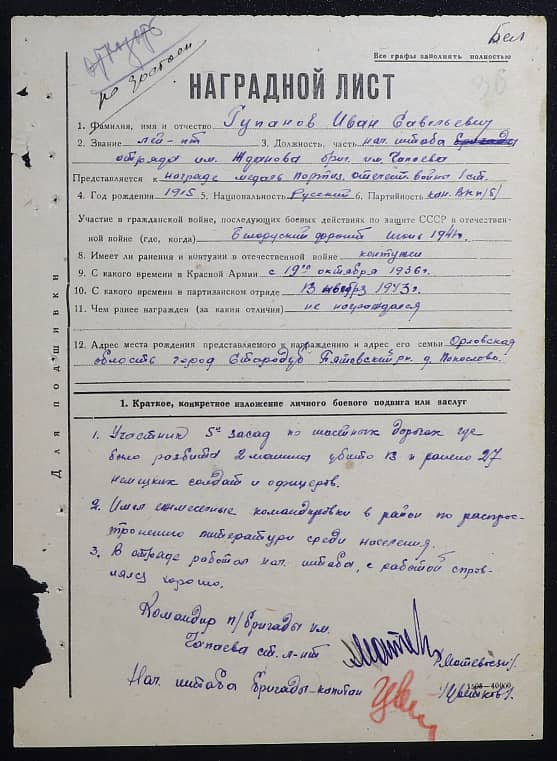 Бел
отказать
Все графы заполнять полностью
36
НАГРАДНОЙ ЛИСТ
1. Фамилия, имя и отчество Гупанов Иван Савельевич
2. Звание лей-нт 3. Должность, часть нач. штаба бригады
отряда им. Жданова бриг. им. Чапаева
Представляется к награде медаль партиз. отечест. война 1 ст.
4. Год рождения 1915 5. Национальность Русский 6. Партийность кан. ВКП/б/
Участие в гражданской войне, последующих боевых действиях по защите СССР и отечествен-
ной войне (где, когда) Белоруский фронт июнь 1941г.
8. Имеет ли ранения и контузии в отечественной войне контужен
9. С какого времени в Красной Армии с 19го октября 1936г.
10. С какого времени в партизанском отряде 13 1943г.
11. Чем ранее награжден (за какия отличия) не награждался
12. Адрес места рождения представляемого к награждению и адрес его семьи Орловская
область город Стародуб д.
Для подшивки
1. Краткое, конкретное изложение личного боевого подвига или заслуг
1. Участник 5и засад по шоссейных дорогах где
было разбита 2 машины убито 13 и ранено 27
немецких солдат и офицеров.
2. Имел ежемесечные командировки в район по распрос-
тронению литературы среди населения.
3. В отряде работал нач. штаба, с работой справ-
лялся хорошо.
Командир п/бригады им.
Чапаева ст. л-нт
Нач. штаба бригады-капитан /Цветков/.